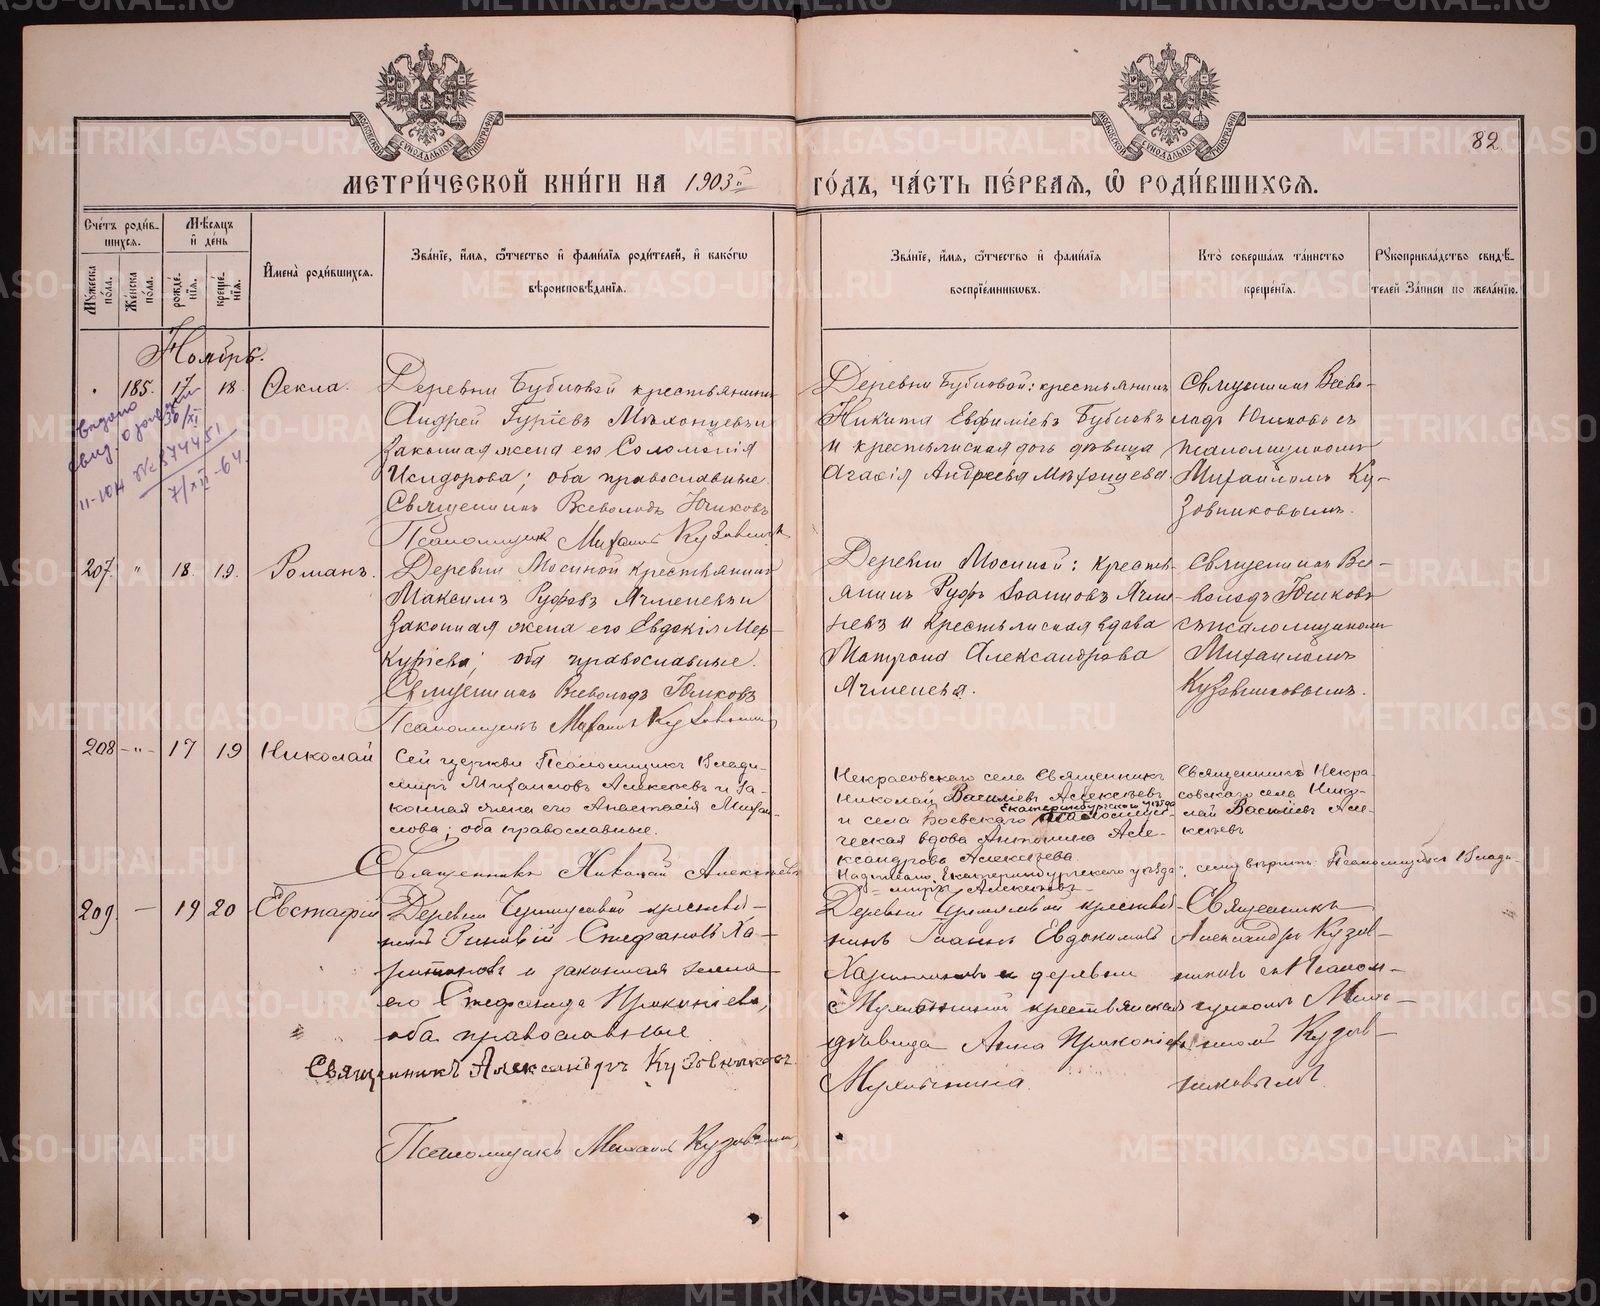 82
МЕТРИ́ЧЕСКОЙ КНИ́ГИ НА 1903й ГО́ДЪ, ЧА́СТЬ ПЕ́РВАЯ, Ѡ҆ РОДИ́ВШИХСЯ.
Сче́тъ роди́в-
шихся.
Мѣ́сяцъ
и҆ де́нь
Мꙋ́жеска по́ла.
Же́нска по́ла.
рожде́-
нїя.
креще́-
нїя.
И҆мена̀ роди́вшихся.
Зва́нїе, и҆́мя, ѻ҆́тчество и҆ фами́лїя роди́телей, и҆ како́гѡ
вѣроисповѣ́данїя.
Зва́нїе, и҆́мя, ѻ҆́тчество и҆ фами́лїя
воспрїе́мниковъ.
Кто̀ соверша́лъ та́инство
креще́нїя.
Рꙋкоприкла́дство свидѣ́-
телей за́писи по жела́нїю.
Ноябрь.
185. 17 18 Ѳекла.
Деревни Бубновой крестьянинъ
Андрей Гуріевъ Мѣхонцевъ и
законная жена его Соломонія
Исидорова; оба православные.
Священникъ Всеволодъ Юшковъ
Псаломщикъ Михаилъ Кузовников
Деревни Бубновой: крестьянинъ
Никита Евфиміевъ Бубновъ
и крестьянская дочь дѣвица
Агафія Андреева Мѣхонцева.
Священникъ Всево-
лодъ Юшковъ съ
псаломщикомъ
Михаиломъ Ку-
зовниковымъ.
выдано
свид. о рождении
30/XI
II-ЮН № 874451
7/XII-64.
207. " 18. 19. Романъ.
Деревни Мосиной крестьянинъ
Максимъ Руфовъ Ячменевъ и
законная жена его Евдокія Мер-
куріева; оба православные.
Священникъ Всеволодъ Юшковъ
Псаломщикъ Михаилъ Кузовников
Деревни Мосиной: кресть-
янинъ Руфъ Іоанновъ Ячме-
невъ и крестьянская вдова
Матрона Александрова
Ячменева.
Священникъ Все-
володъ Юшковъ
съ псаломщикомъ
Михаиломъ
Кузовниковымъ.
208 -"- 17 19 Николай
Сей церкви Псаломщикъ Влади-
миръ Михаиловъ Алексѣевъ и за-
конная жена его Анастасія Михаи-
лова; оба православные.
Священникъ Николай Алексѣевъ
Некрасовскаго села Священникъ
Николай Василіевъ Алексѣевъ
Екатеринбургского уѣзда
и села Боевскаго псаломщи-
ческая вдова Антонина Але-
ксандрова Алексѣева
Надписано, Екатеринбургскаго уѣзда; сему вѣрить: Псаломщикъ Влади-
миръ Алексѣевъ
Священникъ Некра-
совскаго села Нико-
лай Василіевъ Але-
ксѣевъ
209. — 19 20 Евстафій
Деревни Черноусовой крестья-
нинъ Зиновій Стефановъ Ха-
ритоновъ и законная жена
его Стефанида Прокопіева,
оба православные
Священникъ Александръ Кузовниковъ.
Псаломщикъ Михаилъ Кузовников
Деревни Черноусовой крестья-
нинъ Іоаннъ Евдокимовъ
Харитоновъ и деревни
крестьянская
дѣвица Анна Прокопіева
Священникъ
Александръ Кузов-
никовъ съ Псалом-
щикомъ Миха-
иломъ Кузов-
никовымъ.
METRIKI.GASO-URAL.RU